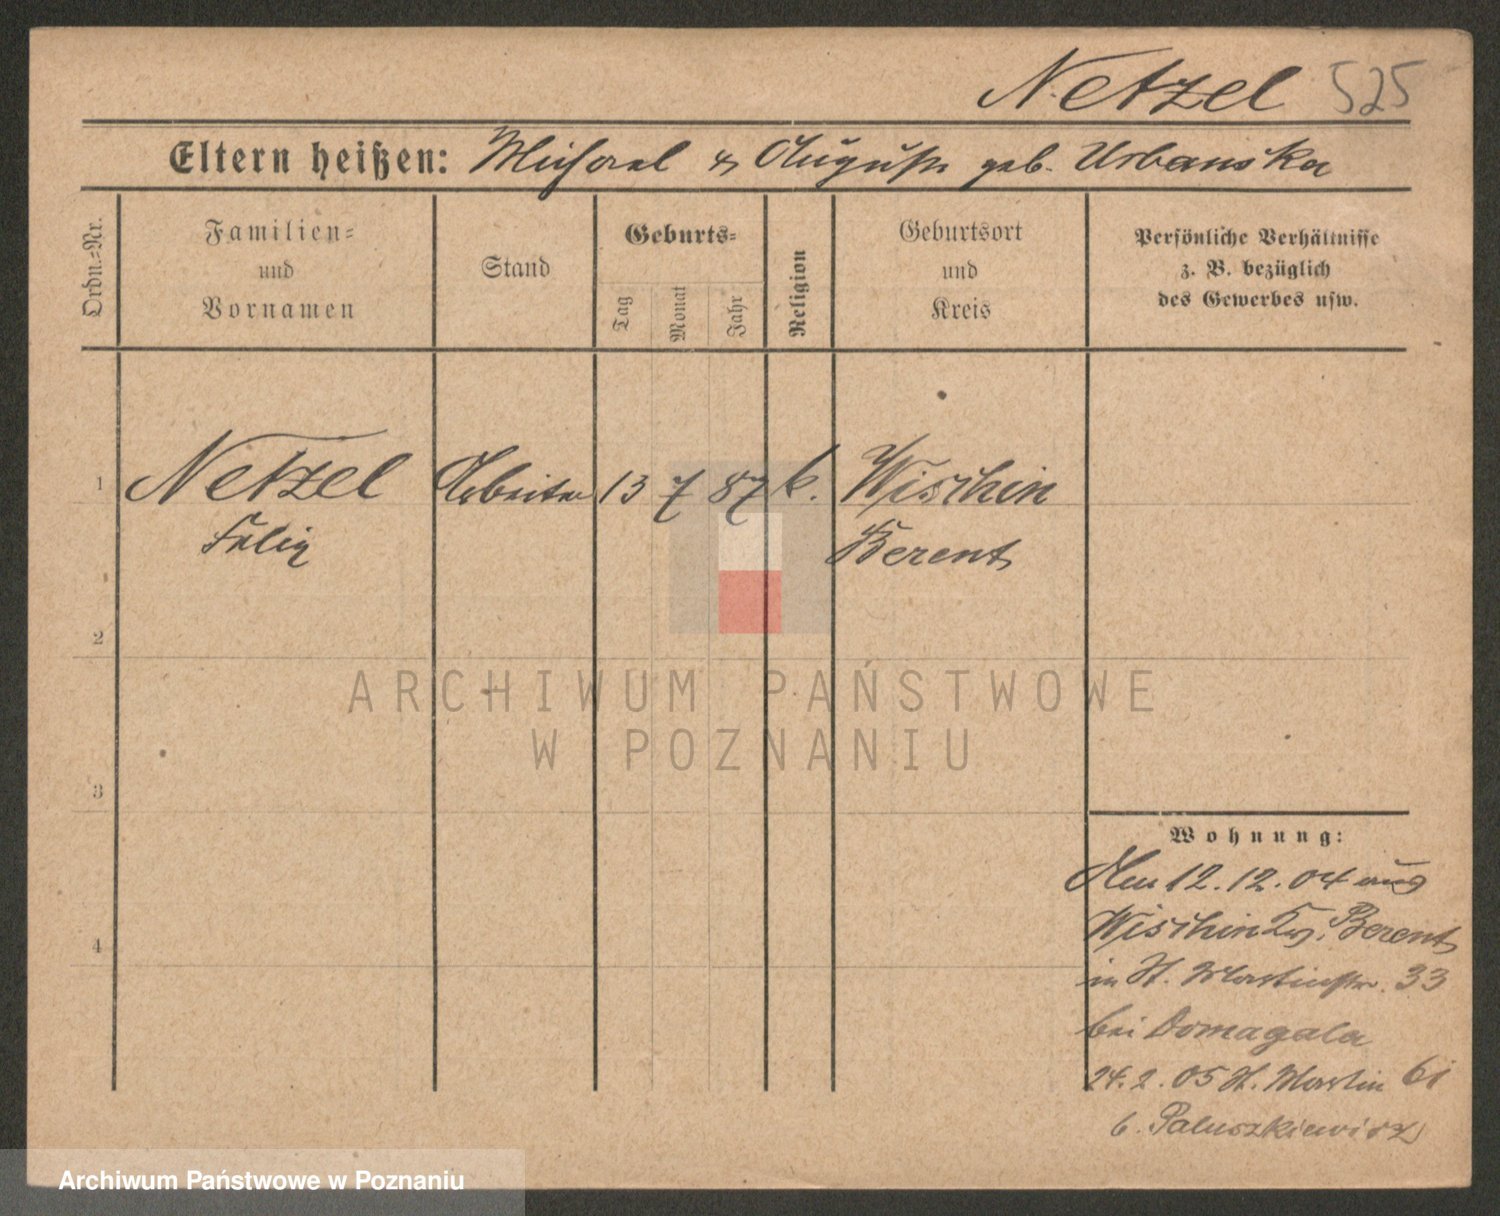 Netzel 525
Eltern heißen: Michael & Auguste geb. Urbanska
Ordn.-Nr.
Familien-
und
Vornamen
Stand
Geburts-
Tag
Monat
Jahr
Religion
Geburtsort
und
Kreis
Persönliche Verhältnisse
z. B. bezüglich
des Gewerbes usw.
1 Netzel Arbeiter 13 7 87 k. Wischin
Felix Berent
2
ARCHIWUM PAŃSTWOWE
W POZNANIU
3
Wohnung:
Am 12.12.04 aus
Wischin Kr. Berent
4
in St. Martinstr. 33
bei Domagala
24.2.05 St. Martin 61
b. Paluszkiewicz
Archiwum Państwowe w Poznaniu